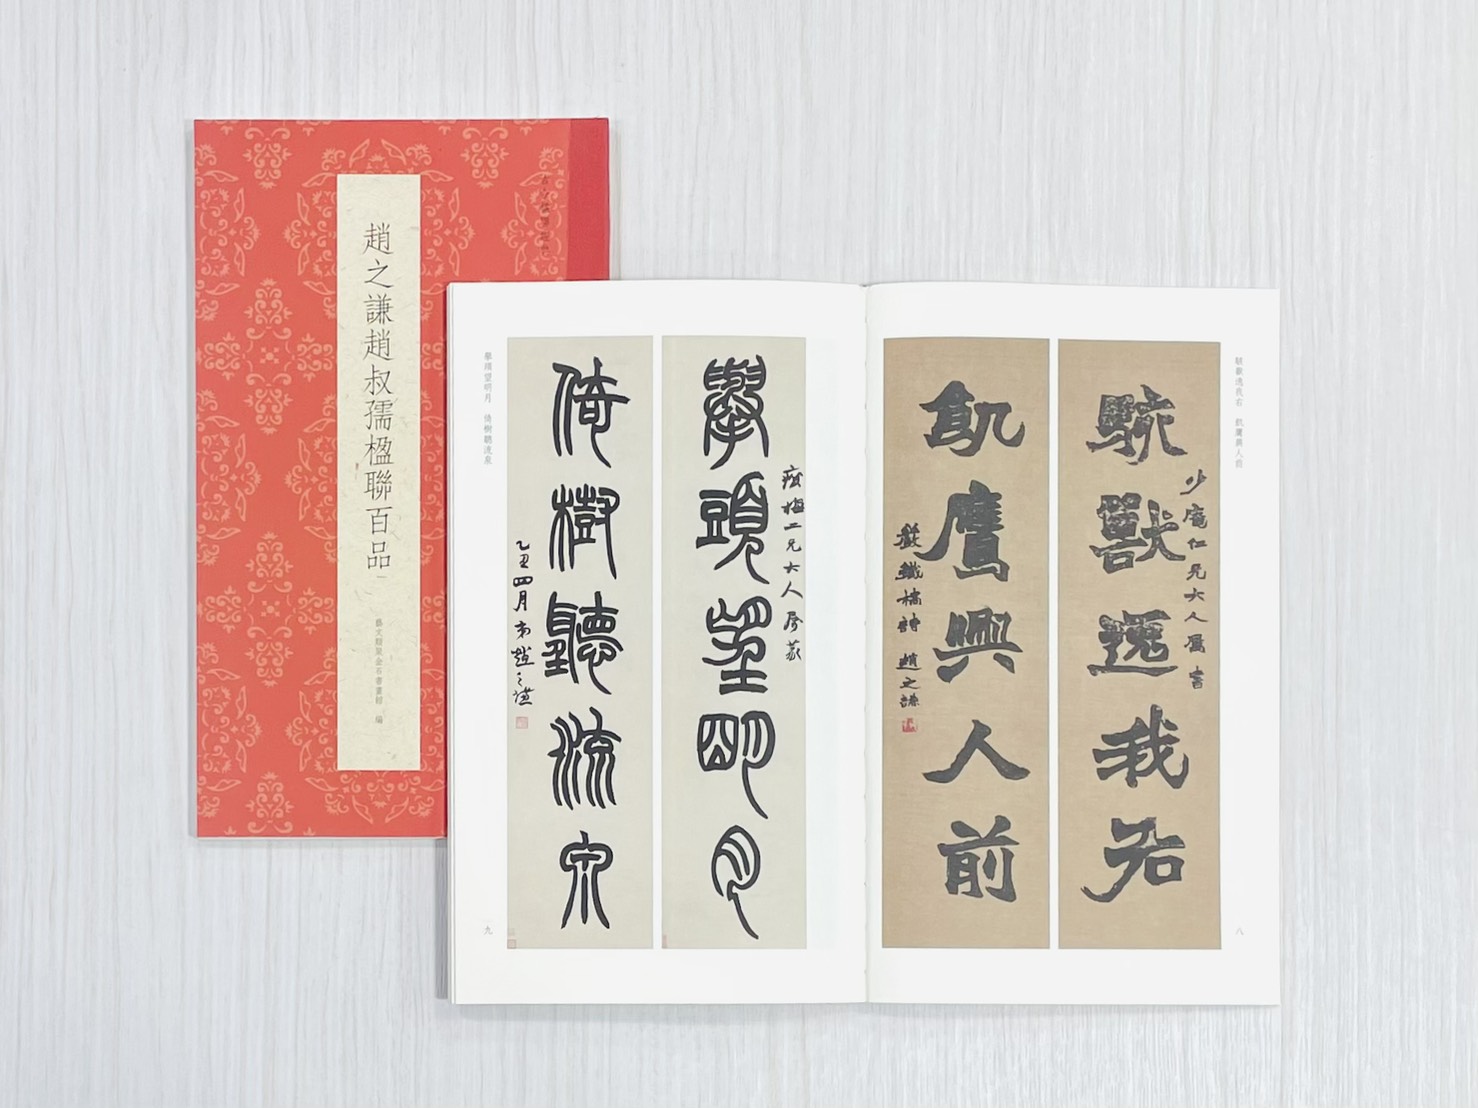 趙之謙趙叔孺楹聯百品
藝文類聚金石書畫館 編
駭獸逸我右 飢鷹興人前
少庵仁兄大人屬書
駭獸逸我右
飢鷹興人前
嚴鐵橋詩 趙之謙
八
痴梅二兄大人屬篆
舉頭望明月
倚樹聽流泉
乙丑四月弟趙之謙
舉頭望明月 倚樹聽流泉
九